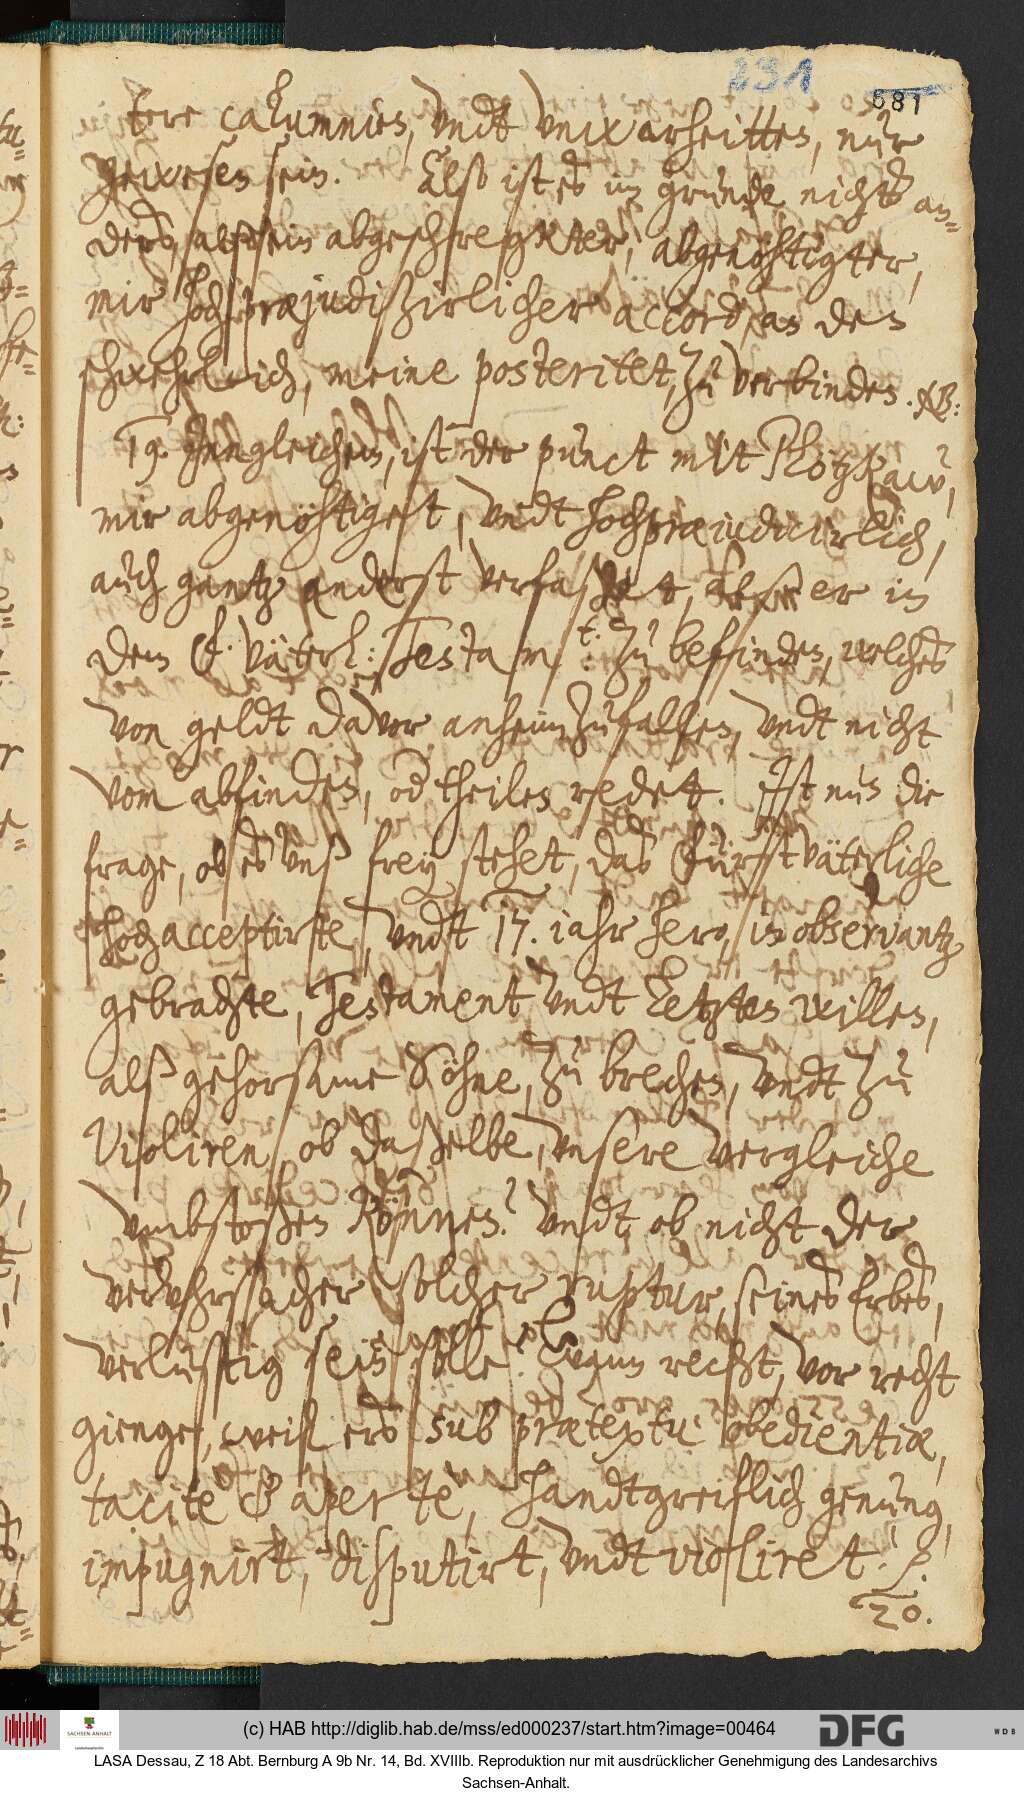 231
681
tere calumnien, undt unwarheitten, nur
gewesen sein. Also ist es im grunde nichts an-
ders, alß ein abgeschregkter, abgenöhtigter,
mir hochpræjudiszirlicher accord, an den
schwehrlich, meine posteritet, zu verbinden. NB:
19. Jnngleichen, ist der punct mitt Plötzkaw,
mir abgenöhtiget, undt hochpræiudicirlich,
auch gantz anderst verfaßet, alß er in
dem F. Väterl: Testam:t zu befinden, welches
von geldt davor anheim zu fallen, undt nicht
vom abfinden, od theilen redet. Jst nun die
frage, ob es unß frey stehet, das Fürstväterliche
hochacceptirte, undt 17. iahr hero, in observantz
gebrachte, Testament undt Letzten willen,
alß gehorsame Söhne, zu brechen, undt zu
violiren, ob daßelbe, unsere vergleiche
umbstoßen können? undt ob nicht der
veruhrsacher solcher ruptur, seines Erbes,
verlustig sein solle? wann recht, vor recht
gienge, weil ers sub prætextu obedientiæ,
tacite & aperte, handtgreiflich genung,
impugnirt, disputirt, undt violiret. /.
20.
(c) HAB http://diglib.hab.de/mss/ed000237/start.htm?image=00464
SACHSEN-ANHALT
DFG
WDB
LASA Dessau, Z 18 Abt. Bernburg A 9b Nr. 14, Bd. XVIIIb. Reproduktion nur mit ausdrücklicher Genehmigung des Landesarchivs
Sachsen-Anhalt.